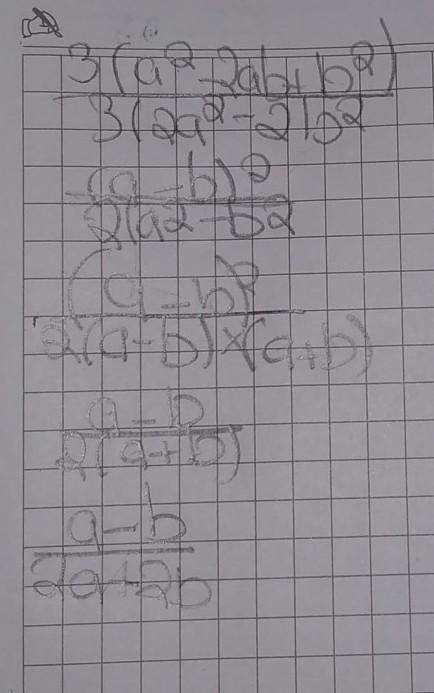 3(a²-2ab+b²)
3(2a²-2b²
(a-b)²
2(a2-b2
(a-b)²
2(a-b)×(a+b)
a-b
2(a+b)
a-b
2a+2b